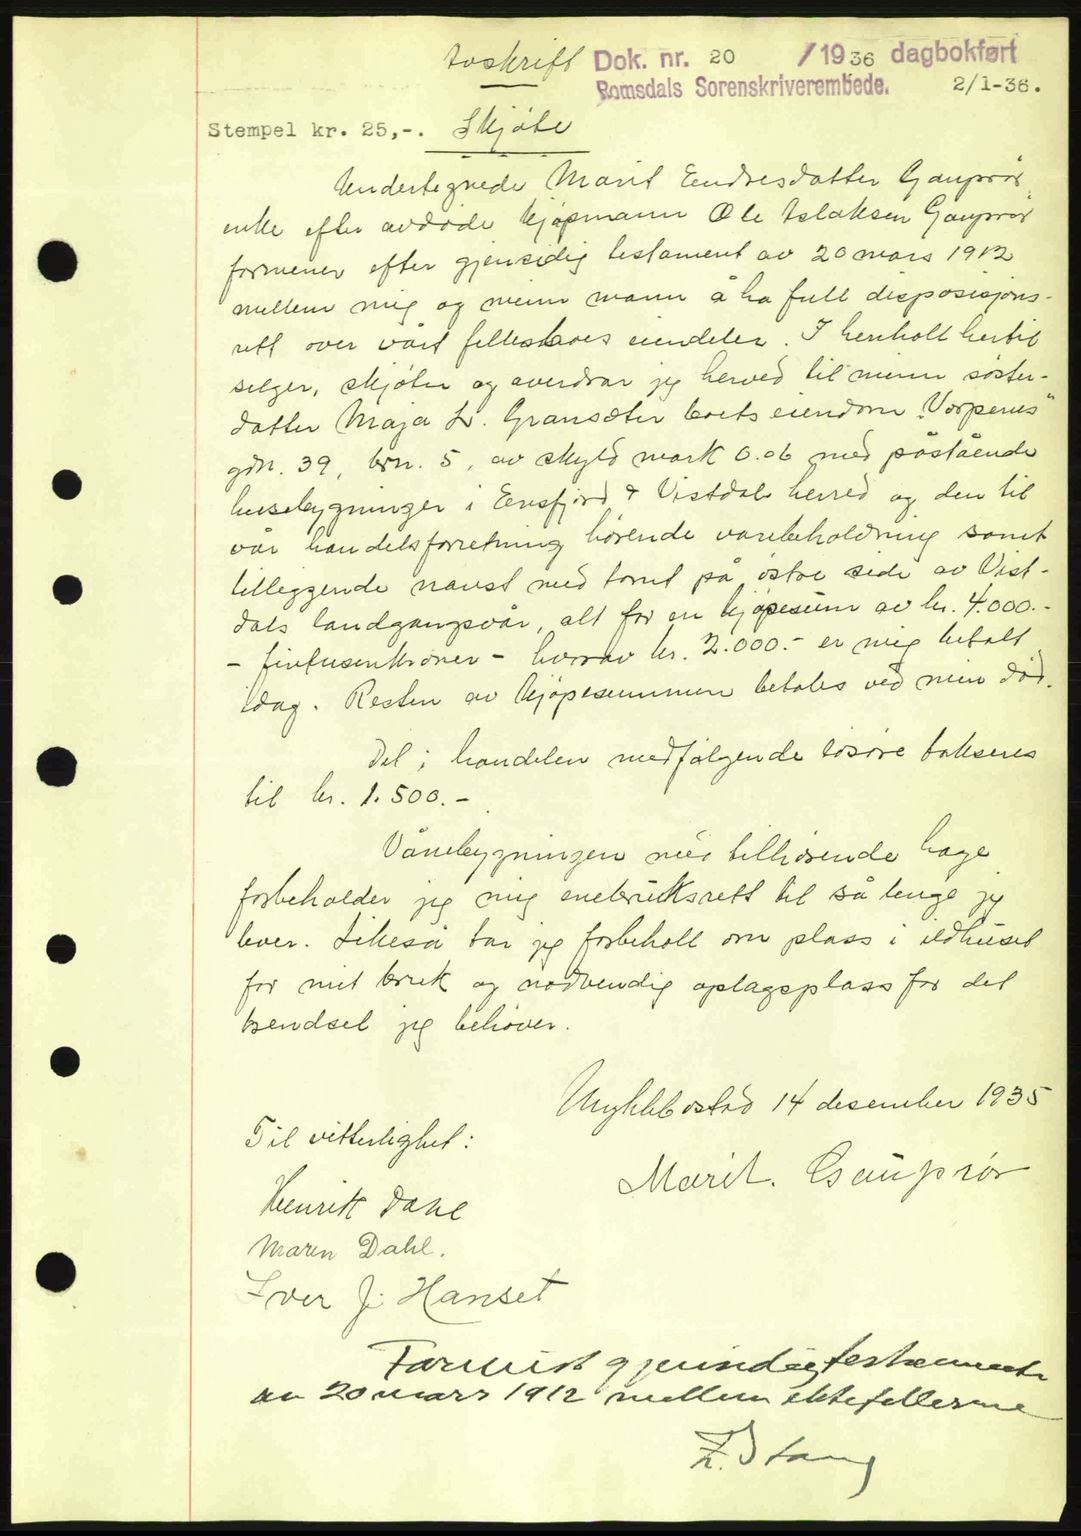 Avskrift Dok. nr. 20 /1936 dagbokført
Romsdals Sorenskriverembede. 2/1-36.
Stempel kr. 25,-. Skjøte
Undertegnede Marit Eendresdatter Gauprør,
enke efter avdøde kjøpmann Ole Aslaksen Gauprør
formener efter gjensidig testament av 20 mars 1912
mellem mig og min mann å ha full disposisjons-
rett over vårt fellesboes eiendeler. I henhold hertil
selger, skjøter og averdrar jeg herved til min søster-
datter Maja L. Gransæter boets eiendom "Vorpenes"
gdn. 39, brn. 5, av skyld mark 0.06 med påstående
husebygninger i Eresfjord & Vistdal herred og den til
vår handelsforretning hørende varebeholdning samt
tilliggende naust med tomt på østre side av Vist-
dals landgangsvår, alt for en kjøpesum av kr. 4.000.-
- firetusenkroner - hvorav kr. 2.000.- er mig betalt
idag. Resten av kjøpesummen betales ved min død.
Det i handelen medfølgende løsøre takseres
til kr. 1.500.-
Vånebygningen med tilhørende hage
forbeholder jeg mig enebruksrett til så lenge jeg
lever. Likeså tar jeg forbehold om plass i ildhuset
for mit bruk og nødvendig oplagsplass for det
brendsel jeg behøver.
Myklebostad 14 desember 1935
Til vitterlighet:
Marit. Gauprør
Henrik Dahl
Maren Dahl.
Iver J. Hanset
Forevist gjensidig testamente
av 20 mars 1912 mellem ektefellerne
Stang